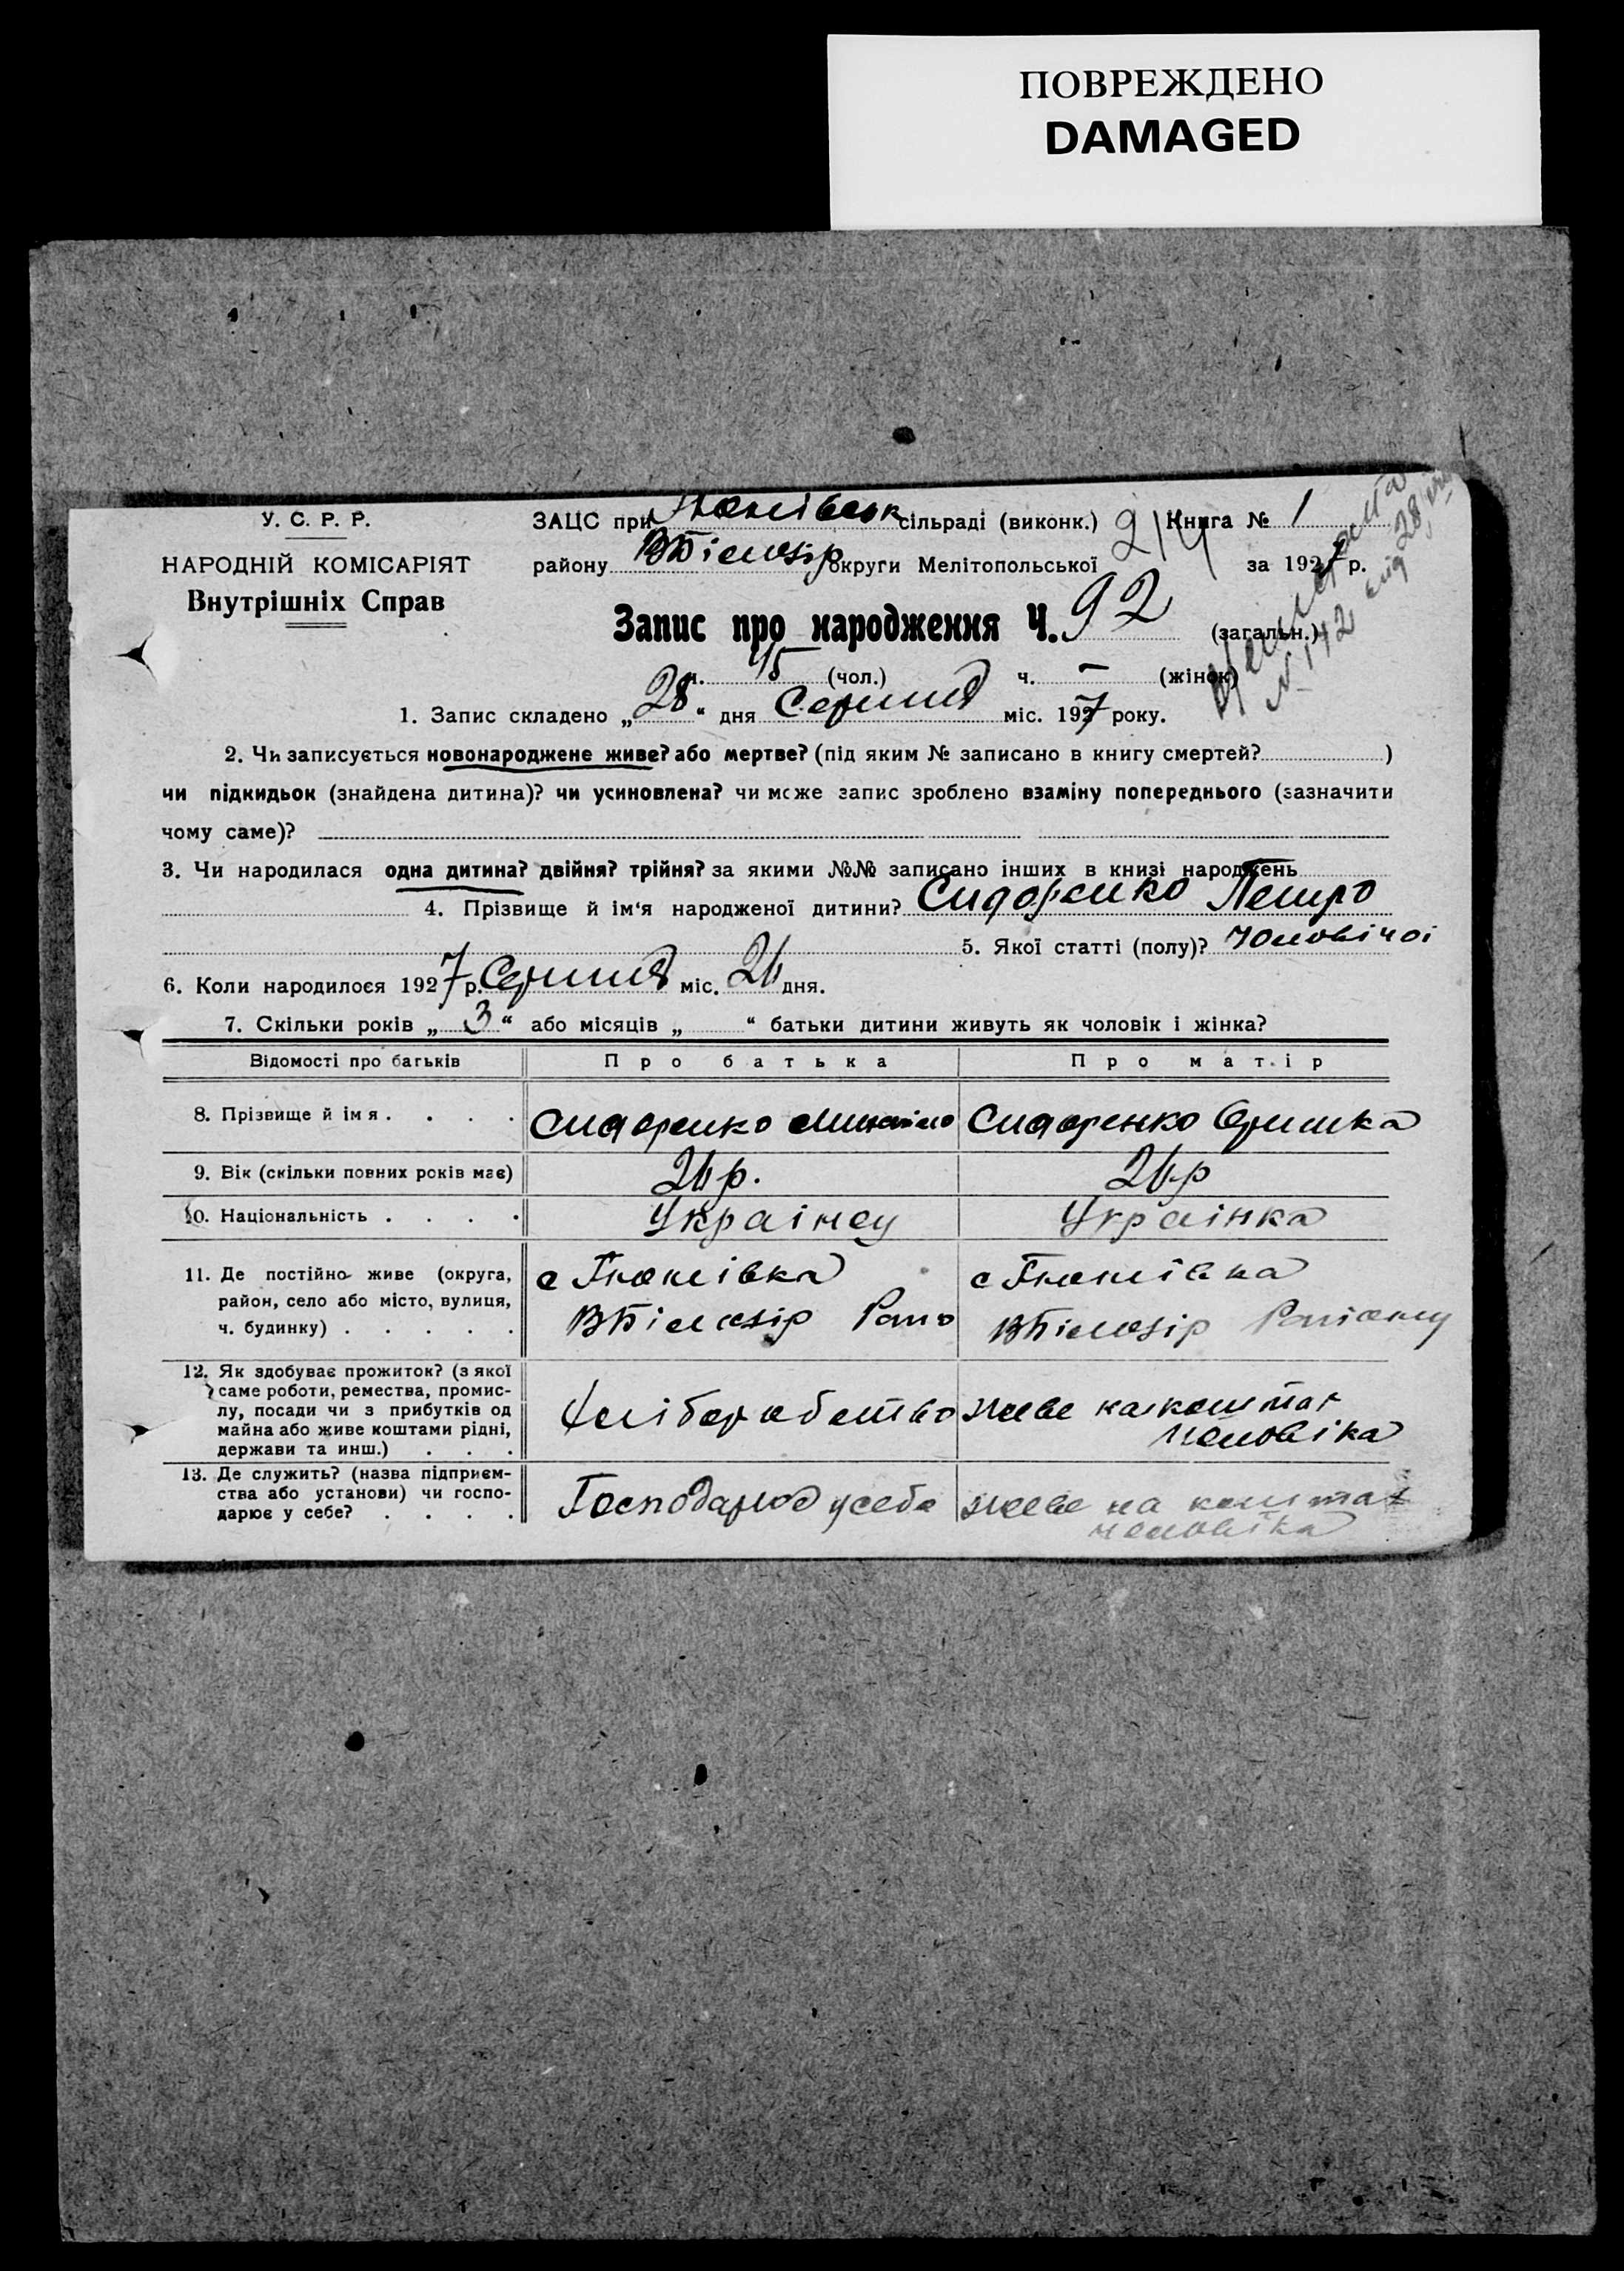 ПОВРЕЖДЕНО
DAMAGED
У. С. Р. Р.
НАРОДНІЙ КОМІСАРІЯТ
Внутрішніх Справ
ЗАЦС при сільраді (виконк.) 214 Книга № 1
району ВБілозір округи Мелітопольської за 1927 р.
Запис про народження Ч. 92 (загальн.)
ч. 45 (чол.) ч. — (жінок)
№ 142 від 28
1. Запис складено „28“ дня Серпня міс. 1927 року.
2. Чи записується новонароджене живе? або мертве? (під яким № записано в книгу смертей? )
чи підкидьок (знайдена дитина)? чи усиновлена? чи може запис зроблено взаміну попереднього (зазначити
чому саме)?
3. Чи народилася одна дитина? двійня? трійня? за якими №№ записано інших в книзі народжень
4. Прізвище й ім‘я народженої дитини? Сидоренко Петро
5. Якої статті (полу)? Чоловічої
6. Коли народилося 1927 р. Серпня міс. 26 дня.
7. Скільки років „3“ або місяців „ “ батьки дитини живуть як чоловік і жінка?
Відомості про батьків Про батька Про матір
8. Прізвище й імя . . . . Сидоренко Сидоренко Оришка
9. Вік (скільки повних років має) 26 р. 26 р
10. Національність . . . . Українец Українка
11. Де постійно живе (округа,
район, село або місто, вулиця,
ч. будинку) . . . . .
с с
ВБілозір Рано ВБілозір
12. Як здобуває прожиток? (з якої
саме роботи, ремества, промис-
лу, посади чи з прибутків од
майна або живе коштами рідні,
держави та инш.) . . .
Хліборобство живе на коштах
чоловіка
13. Де служить? (назва підприєм-
ства або установи) чи госпо-
дарює у себе? . . . .
Господарює у себе живе на коштах
чоловіка